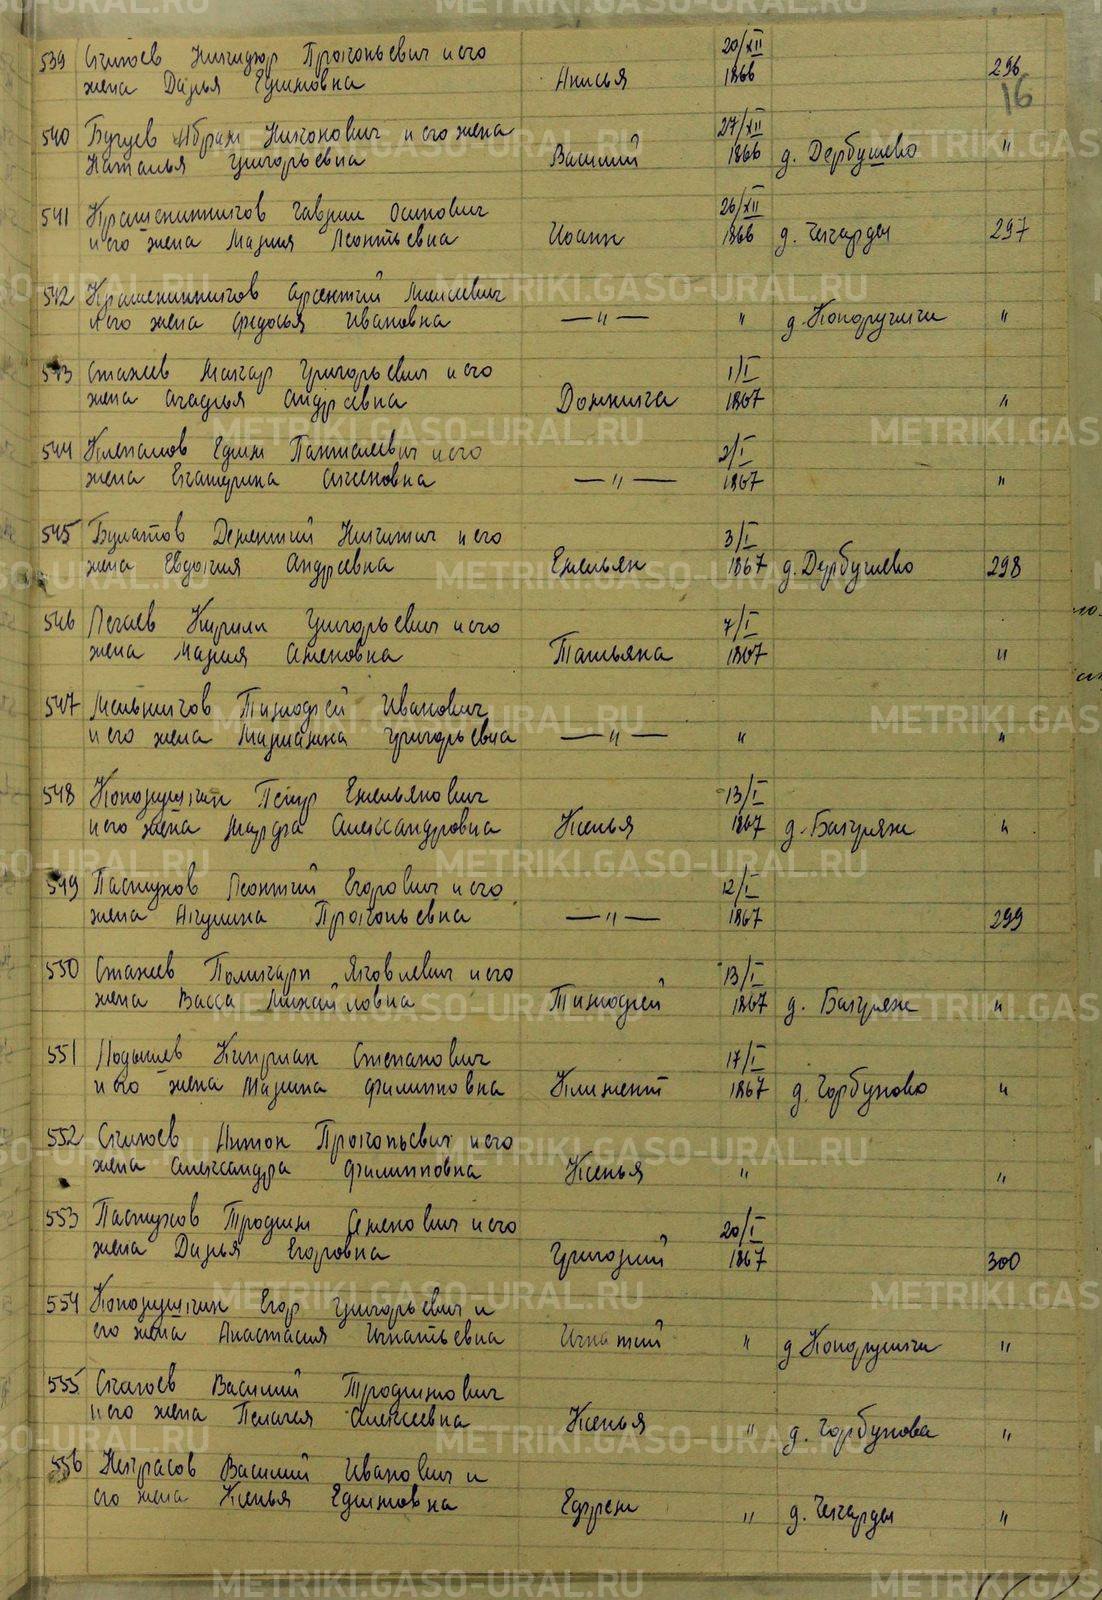 539 Никифор Прокопьевич и его
жена Дарья Ефимовна Анисья 20/XII 1866 296
16
540 Абрам Никонович и его жена
Наталья Григорьевна Василий 27/XII 1866 д. Дербушево "
541 Крашенинников Гаврил Осипович
и его жена Мария Леонтьевна Иоанн 26/XII 1866 д. Чекарды 297
542 Крашенинников Арсентий
и его жена Федосья Ивановна —"— " "
543 Стахеев Макар Григорьевич и его
жена Агафья Андреевна Домника 1/I 1867 "
544 Ефим и его
жена Екатерина —"— 2/I 1867 "
545 Булатов Дементий Никитич и его
жена Евдокия Андреевна Емельян 3/I 1867 д. Дербушево 298
546 Кирилл Григорьевич и его
жена Мария Семеновна Татьяна 7/I 1867 "
547 Мельников Тимофей Иванович
и его жена Марианна Григорьевна —"— " "
548 Петр Емельянович
и его жена Марфа Александровна Ксенья 13/I 1867 д. Багуряк "
549 Пастухов Леонтий Егорович и его
жена Акулина Прокопьевна —"— 12/I 1867 299
550 Стахеев Поликарп Яковлевич и его
жена Васса Михайловна Тимофей 13/I 1867 д. Багуряк "
551 Киприян Степанович
и его жена Марина Филипповна Климент 17/I 1867 д. Горбуново "
552 Антон Прокопьевич и его
жена Александра Филипповна Ксенья " "
553 Пастухов Трофим Семенович и его
жена Дарья Егоровна Григорий 20/I 1867 300
554 Егор Григорьевич и
его жена Анастасия Игнатьевна Игнатий " "
555 Василий Трофимович
и его жена Пелагея Алексеевна Ксенья " д. Горбунова "
556 Некрасов Василий Иванович и
его жена Ксенья Ефимовна Ефрем " д. Чекарды "
METRIKI.GASO-URAL.RU